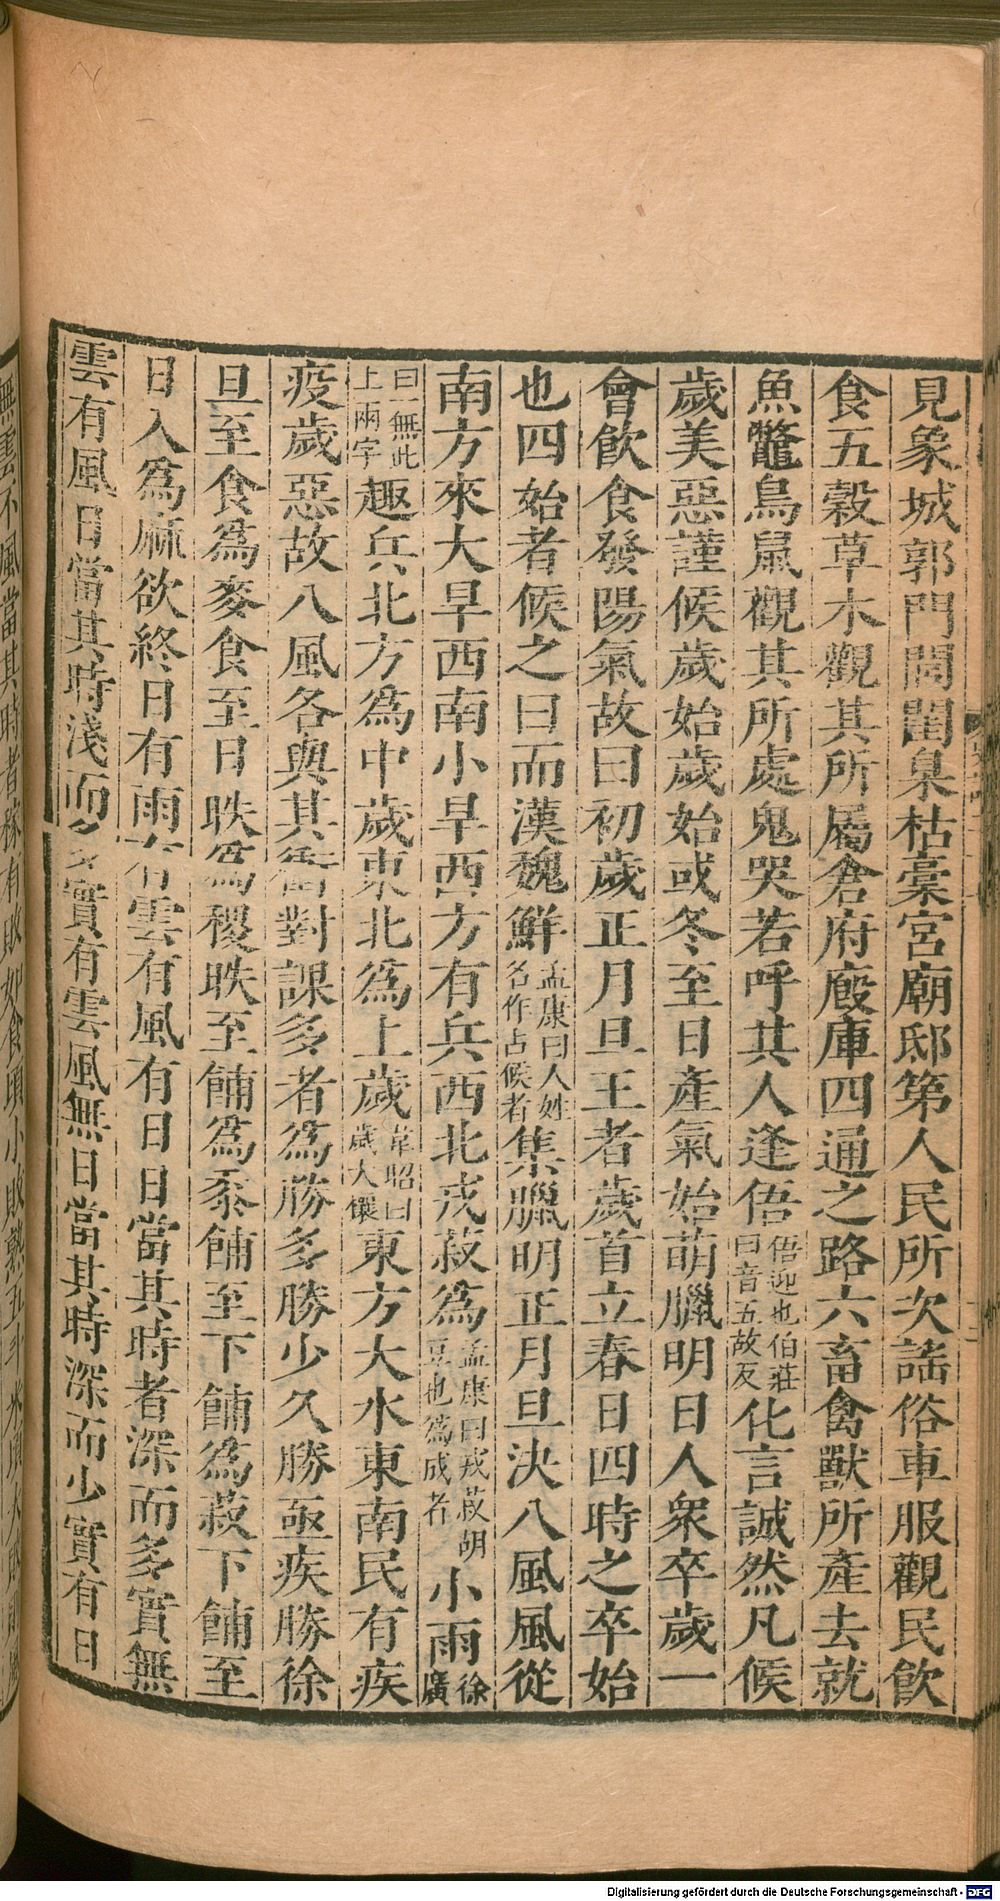 見象城郭門閭閨臬枯槀宮廟邸第人民所次謡俗車服觀民飲
食五穀草木觀其所屬倉府廄庫四通之路六畜禽獸所產去就
魚鼈鳥鼠觀其所處鬼哭若呼其人逢俉俉迎也伯莊曰音五故反化言誠然凡候
歲美惡謹候歲始歲始或冬至日產氣始萌臘明日人衆卒歲一
會飲食發陽氣故曰初歲正月旦王者歲首立春日四時之卒始
也四始者候之日而漢魏鮮孟康曰人姓名作占候者集臘明正月旦決八風風從
南方來大旱西南小旱西方有兵西北戎菽爲孟康曰戎菽胡豆也爲成者小雨徐廣
曰一無此上兩字趣兵北方爲中歲東北爲上歲韋昭曰歲大穰東方大水東南民有疾
疫歲惡故八風各與其衝對課多者爲勝多勝少久勝亟疾勝徐
旦至食爲麥食至日昳爲稷昳至餔爲黍餔至下餔爲菽下餔至
日入爲麻欲終日有雨有雲有風有日日當其時者深而多實無
雲有風日當其時淺而多實有雲風無日當其時深而少實有日
Digitalisierung gefördert durch die Deutsche Forschungsgemeinschaft - DFG